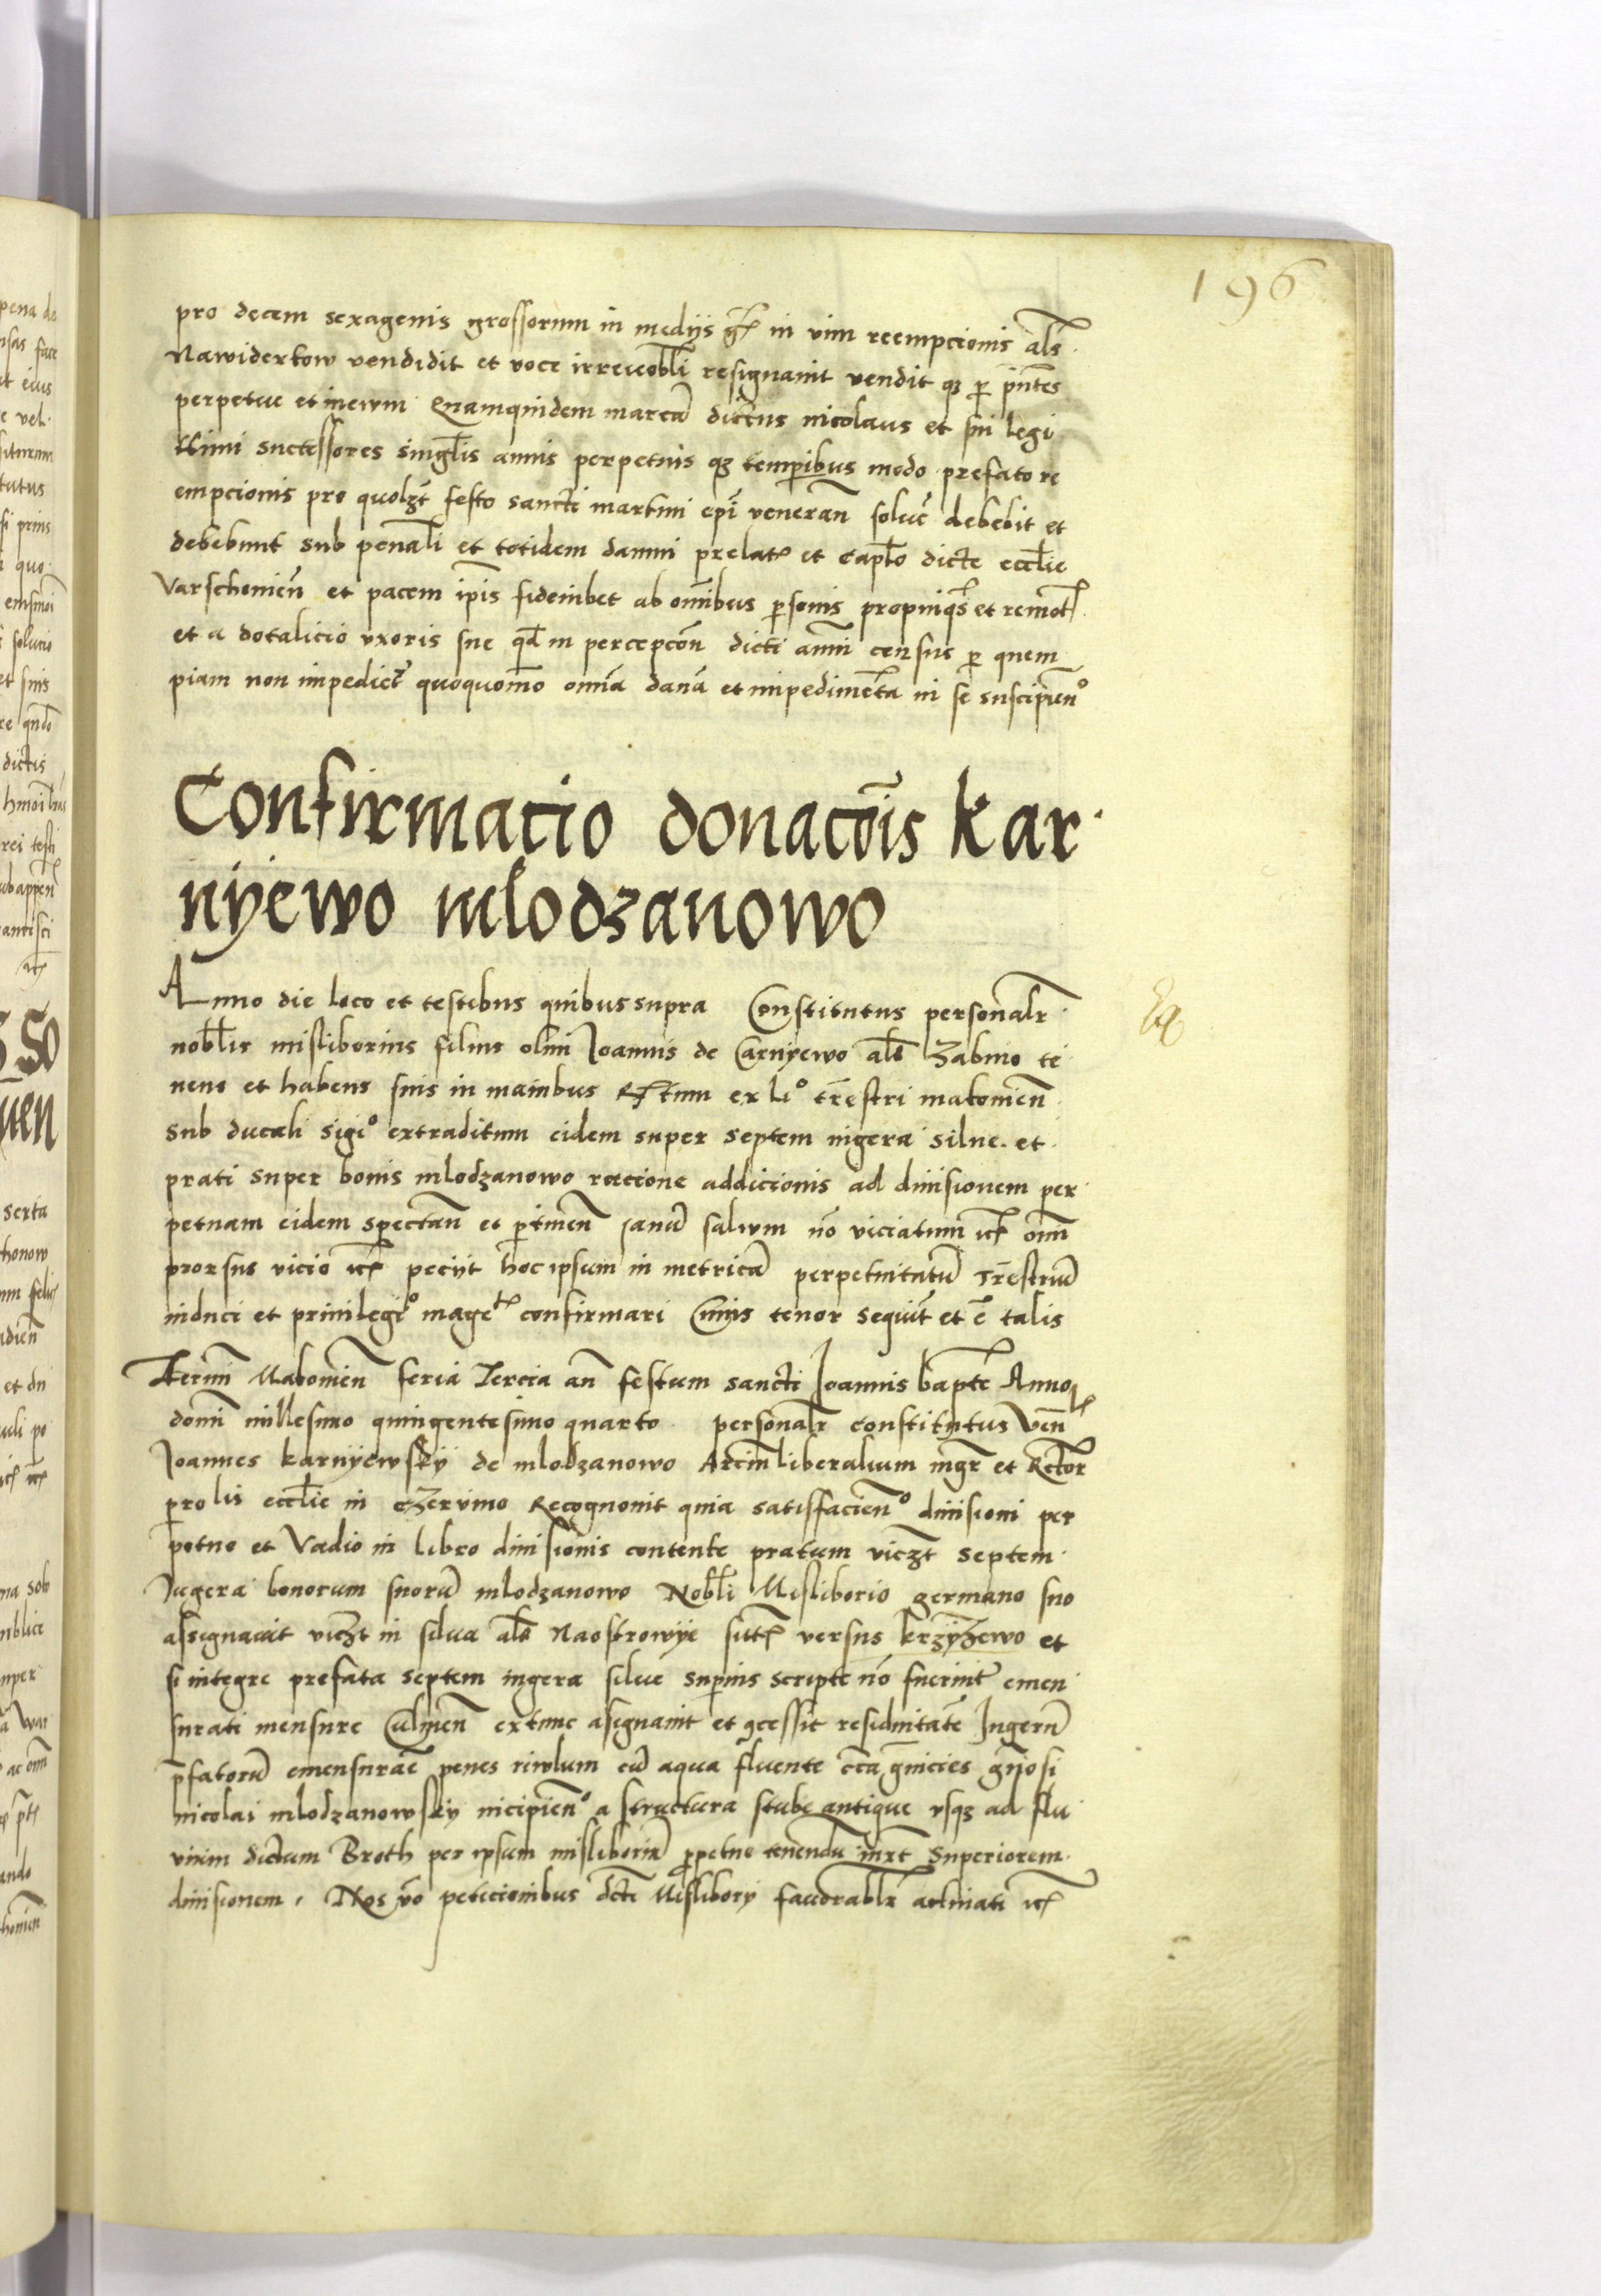 196
pro decem sexagenis grossorum in medijs gr̄ in vim reempcionis als̄
Nawiderkow vendidit et voce irreuocabl̄i resignauit vendit qȝ ꝑ p̄ntes
perpetue et ineuum Quamquidem marcā dictus nicolaus et sui legi
ttimi successores singl̄is annis perpetuis qȝ temporibus modo prefato re
empcionis pro quolȝt festo sancti martini ep̄i venerañ soluē debebit et
debebunt sub penal̄i et totidem damni prelat̄ et capl̄o dicte eccl̄ie
Varschouieñ et pacem ip̄is fideiubet ab om̄ibus ꝑsonis propinqs̄ et remot̄
et a dotalicio vxoris sue qd̄ in percepcōn dicti anni census ꝑ quem
piam non impediet̄ quoquomō omīa dāna et impedimēta in se suscipieñ
Confirmacio donacōis kar
nyewo mlodzanowo
Anno die loco et testibus quibus supra Constitutus personalr̄
nobl̄is misliborius filius olim Joannis de Carnyewo als̄ Zabino te
nens et habens suis in manibus Rtum ex li° tr̄estri makouieñ
sub ducali sigi° extraditum eidem super septem iugera silue et
prati super bonis mlodzanowo racione addicionis ad diuisionem per
petuam eidem spectañ et ꝑtineñ sanū saluum nō viciatum ꝛc̄ omi
prorsus vicio ꝛc̄ peciit hoc ipsum in metricā perpetuitatū Tr̄estriū
induci et priuilegi° confirmari Cuius tenor sequit̄ et ē talis
Termī Makouieñ feria Tercia añ festum sancti Joannis bapt̄e Anno
domī millesimo quingentesimo quarto personalr̄ constitutus Veñ
Joannes karnyewsky de mlodzanowo Arciū liberalium mgr̄ et Rector
ꝑrolis eccl̄ie in czerwino Recognouit quia satisfacieñ° diuisioni per
petue et Vadio in libro diuisionis contente pratum viczt̄ septem
Jugera bonorum suorū mlodzanowo Nobl̄i Misliborio germano suo
assignauit viczt̄ in silua als̄ Naostrowye sitt̄ versus krzyżewo et
si integre prefata septem iugera silue supius scripte nō fuerint emen
surati mensure Culmeñ extunc asignauit et ꝯcessit residuitatē Jugerū
p̄fatorū emensurate penes riwlum cū aqua fluente cc̄a gr̄nicies gn̄osi
nicolai mlodzanowsky incipieñ° a structura stube antique vsqȝ ad flu
uium dictum Broth per ipsum misliboriū ꝑpetue tenendū iuxt̄ Superiorem
diuisionem. Nos v̄o peticionibus dcti Mislibory fauorablr̄ acliuati ꝛc̄